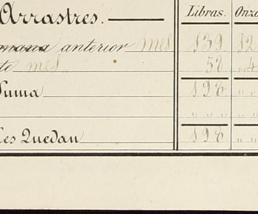 Arrastres. Libras. Onza
mana anterior mes 139 12
to mes 57 4
Suma 196 " "
" " " "
Les Quedan 196 " "